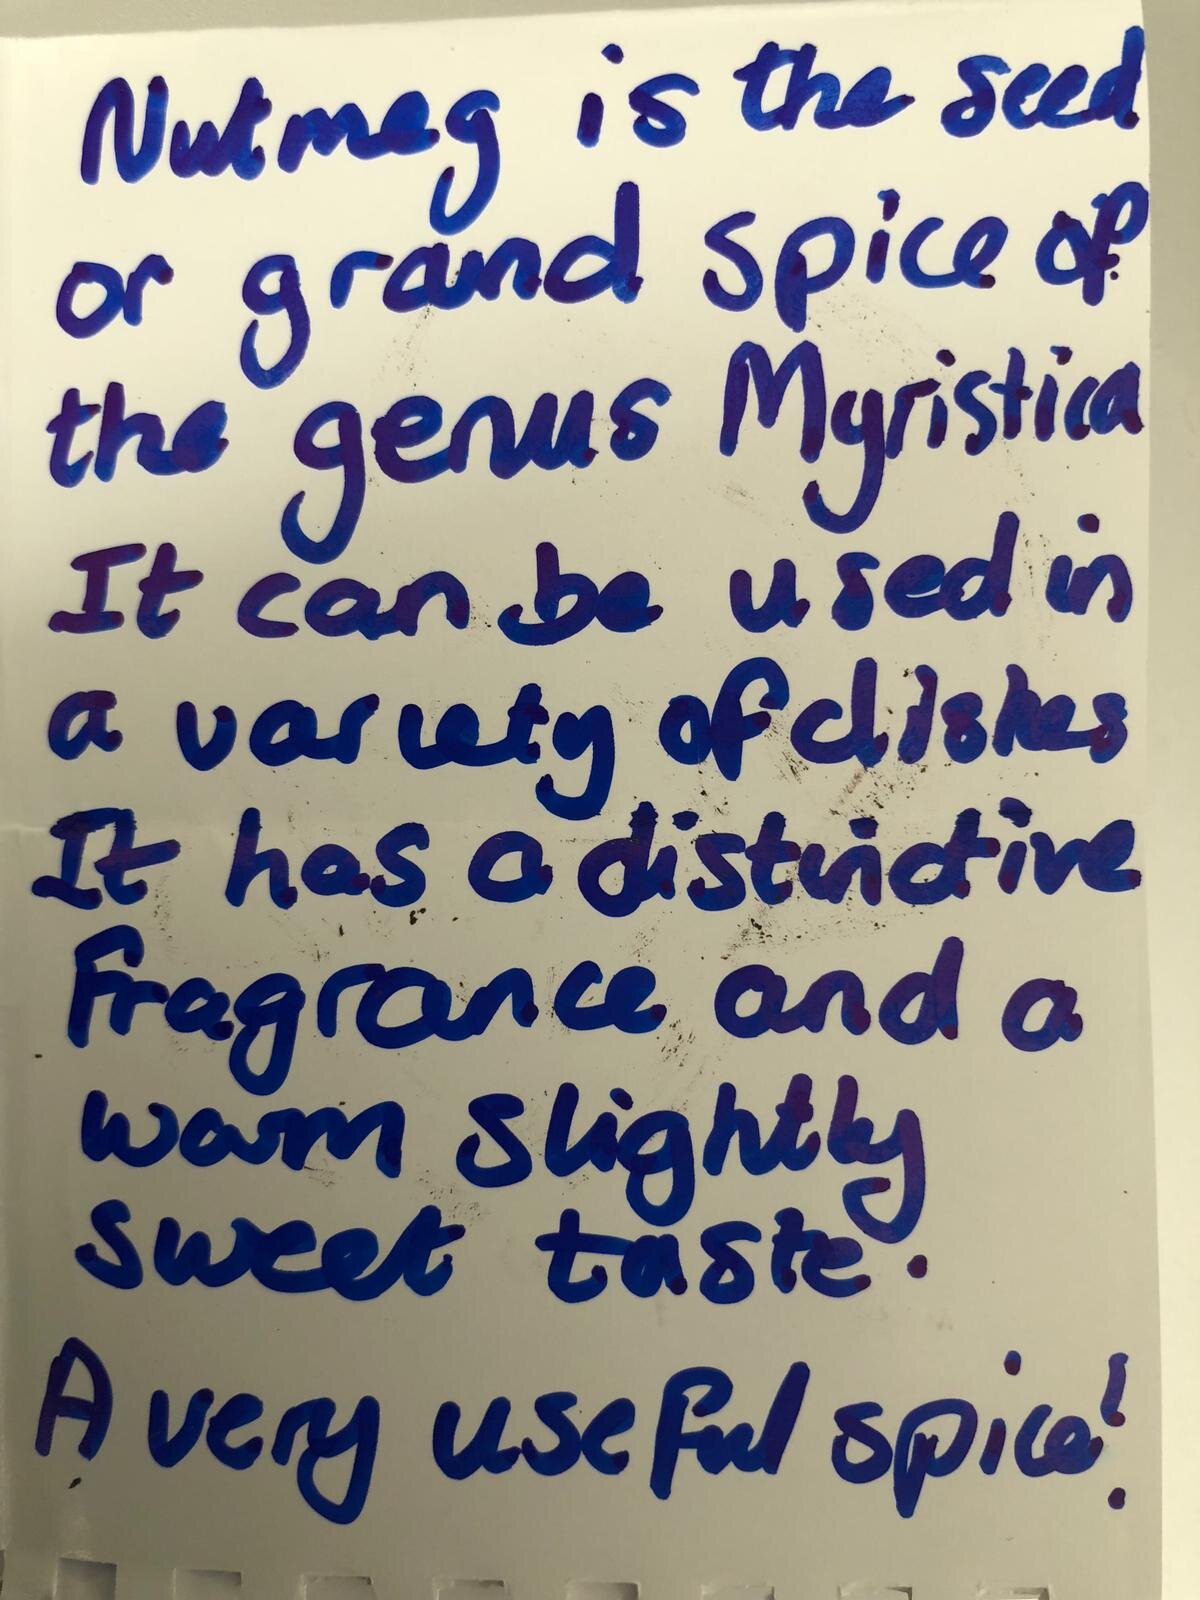 Nutmeg is the seed
or grand spice of
the genus Myristica
It can be used in
a variety of dishes
It has a distinctive
Fragrance and a
warm slightly
sweet taste.
A very useful spice!